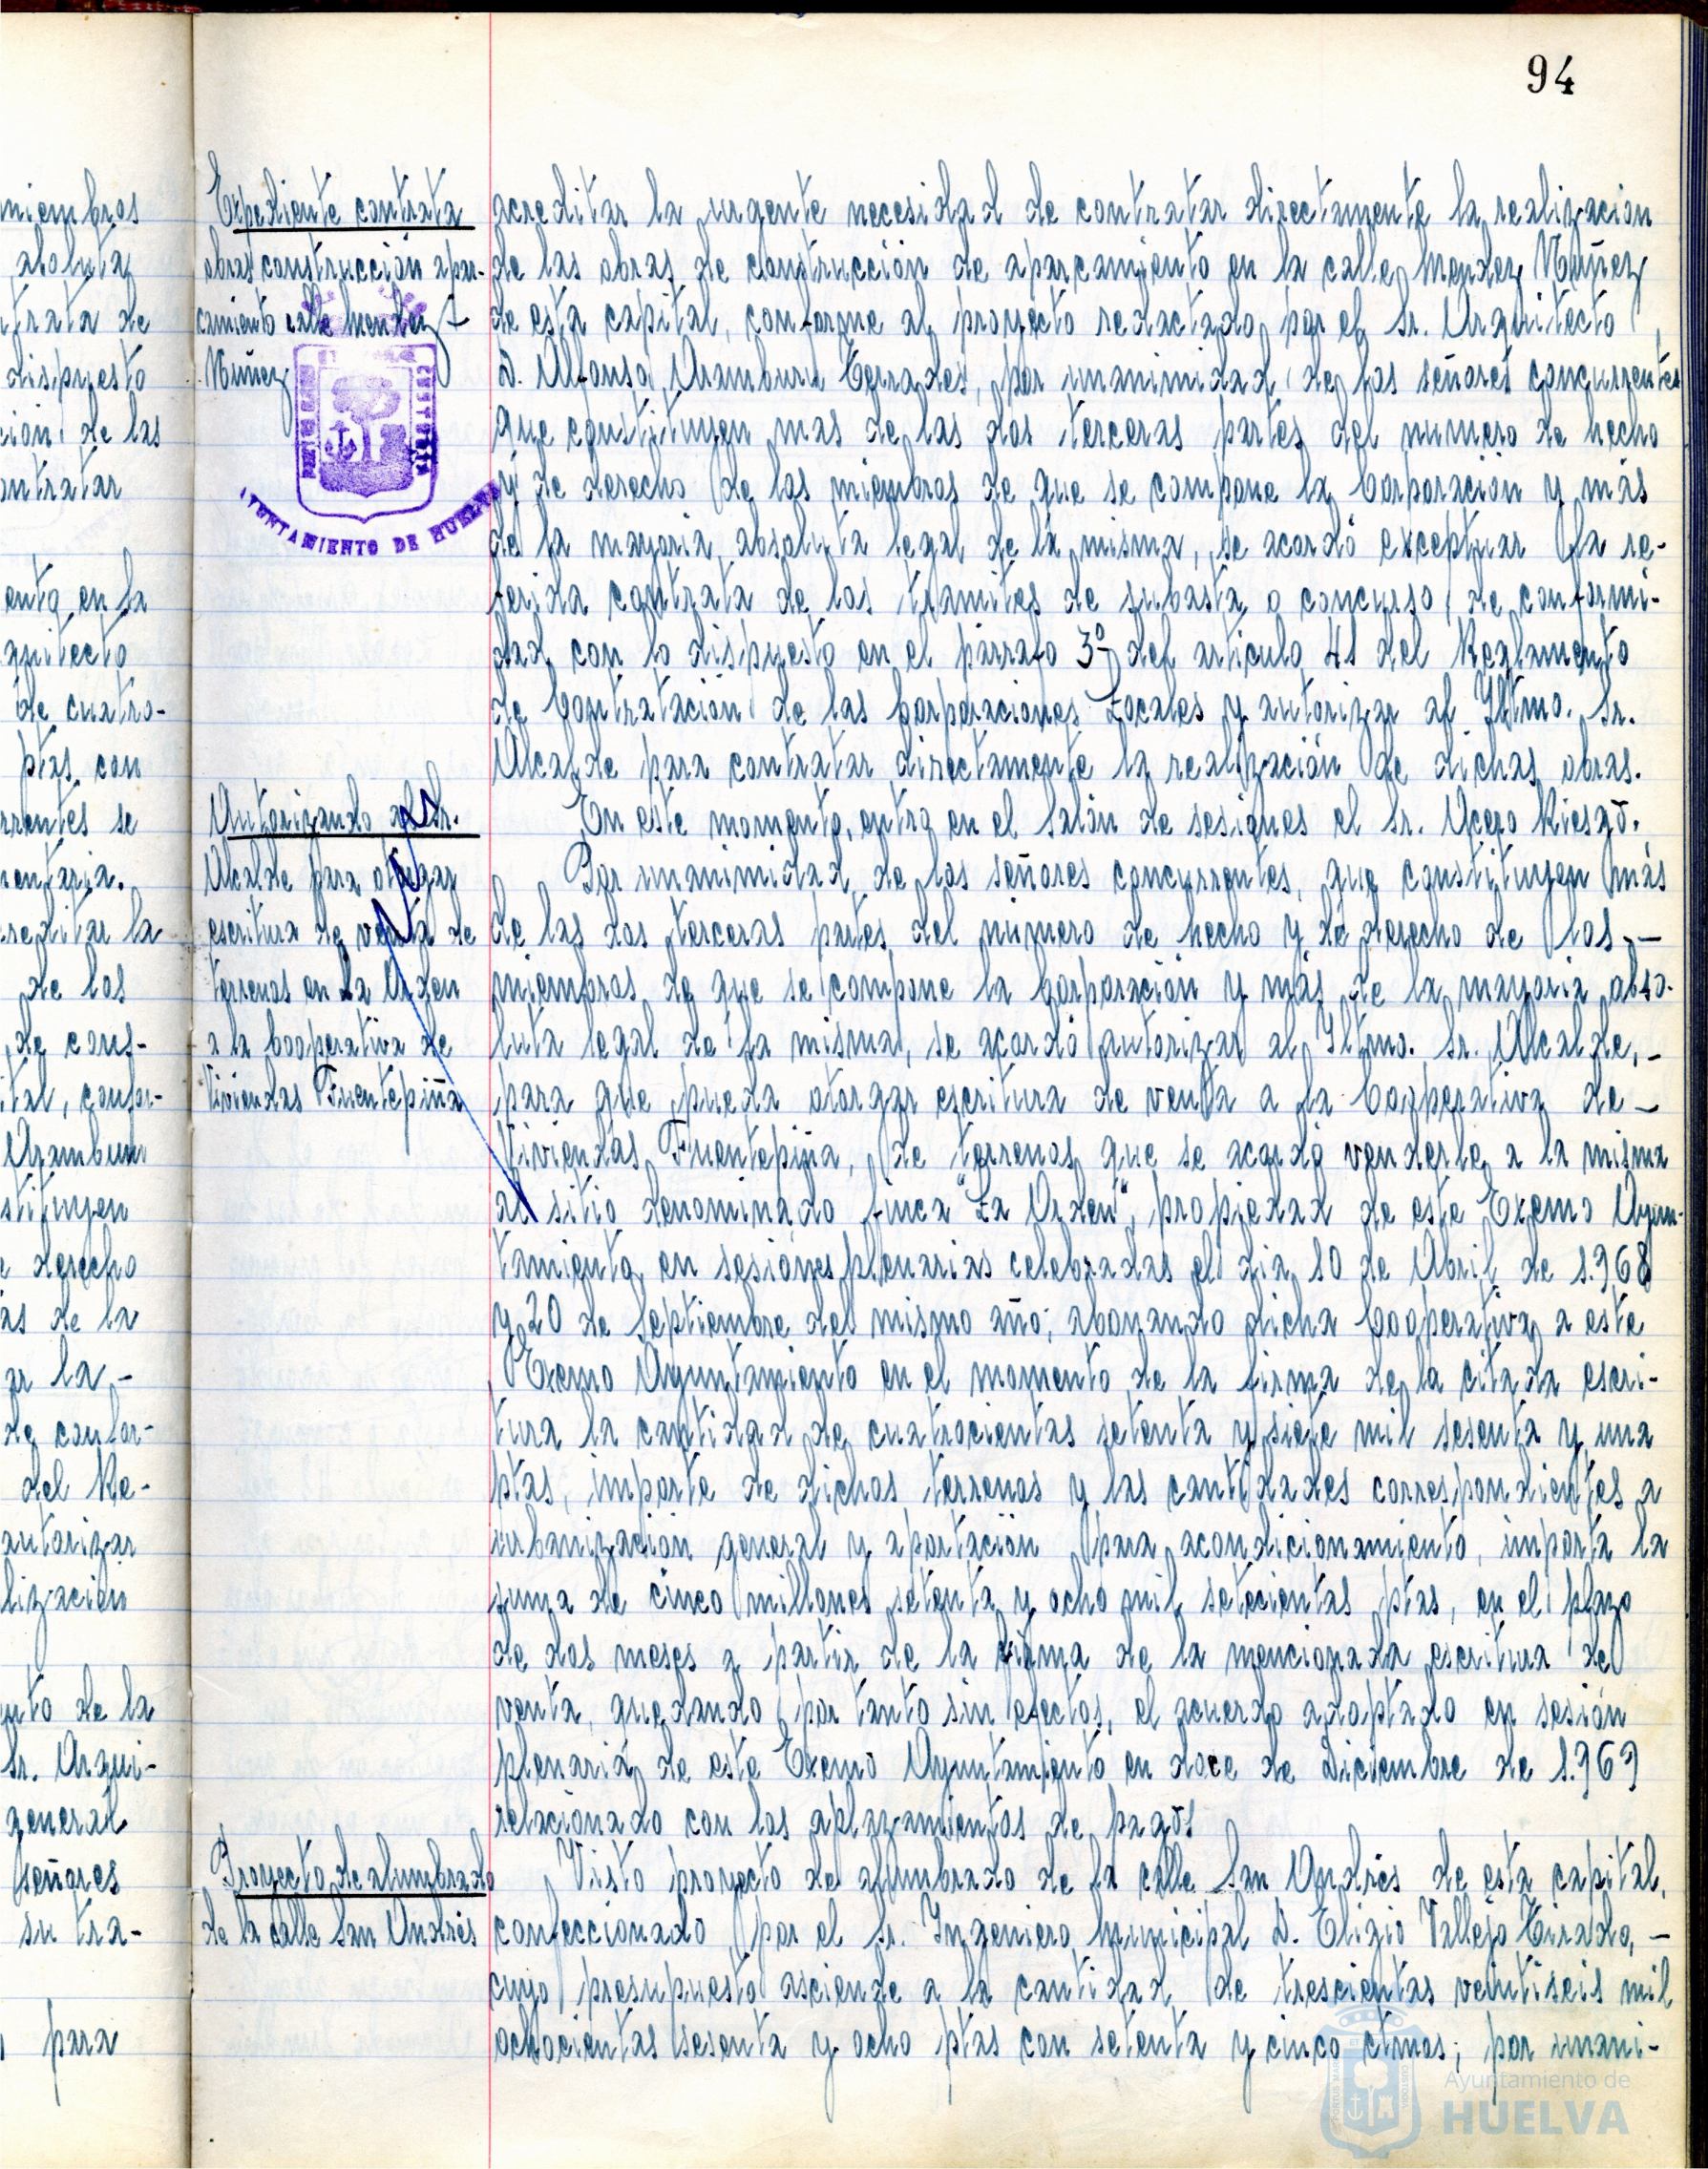 94
Expediente contrata
obras construcción apar-
camiento calle Mendez
Nuñez
acreditar la urgente necesidad de contratar directamente la realizacion
de las obras de construcción de aparcamiento en la calle Mendez Nuñez
de esta capital, conforme al proyecto redactado por el Sr. Arquitecto
D. Alfonso Aramburu Terrades, por unanimidad de los señores concurrentes
que constituyen mas de las dos terceras partes del numero de hecho
y de derecho de los miembros de que se compone la Corporacion y más
de la mayoria absoluta legal de la misma, se acordó exceptuar la re-
ferida contrata de los tramites de subasta o concurso, de conformi-
dad con lo dispuesto en el párrafo 3º del articulo 41 del Reglamento
de Contratación de las Corporaciones Locales y autorizar al Iltmo. Sr.
Alcalde para contratar directamente la realización de dichas obras.
En este momento, entra en el Salón de sesiones el Sr. Acero Riesgo.
Autorizando al Sr.
Alcalde para otorgar
escritura de venta de
terrenos en La Orden
a la Cooperativa de
Viviendas Fuentepiña
Por unanimidad de los señores concurrentes, que constituyen más
de las dos terceras partes del número de hecho y de derecho de los -
miembros de que se compone la Corporación y más de la mayoria abso-
luta legal de la misma, se acordó autorizar al Iltmo. Sr. Alcalde, -
para que pueda otorgar escritura de venta a la Cooperativa de -
Viviendas Fuentepiña, de terrenos que se acordó venderle a la misma
al sitio denominado finca "La Orden", propiedad de este Excmo Ayun-
tamiento, en sesiones plenarias celebradas el dia 10 de Abril de 1.968
y 20 de Septiembre del mismo año; abonando dicha Cooperativa a este
Excmo Ayuntamiento en el momento de la firma de la citada escri-
tura la cantidad de cuatrocientas setenta y siete mil sesenta y una
ptas, importe de dichos terrenos y las cantidades correspondientes a
urbanización general y aportación para acondicionamiento, importa la
suma de cinco millones setenta y ocho mil setecientas ptas, en el plazo
de dos meses a partir de la firma de la mencionada escritura de
venta, quedando por tanto sin efectos, el acuerdo adoptado en sesión
plenaria de este Excmo Ayuntamiento en doce de Diciembre de 1.969
relacionado con los aplazamientos de pagos
Proyecto de alumbrado
de la calle San Andrés
Visto proyecto de alumbrado de la calle San Andrés de esta capital,
confeccionado por el Sr. Ingeniero Municipal D. Eligio Vallejo Tirado, -
cuyo presupuesto asciende a la cantidad de trescientas veintiseis mil
ochocientas sesenta y ocho ptas con setenta y cinco ctmos; por unani-
miembros
absoluta
trata de
dispuesto
ción de las
ontratar
ento en la
quitecto
de cuatro-
ptas con
rrentes se
entaria.
reditar la
de los
de cons-
ital, confor-
Aramburu
stituyen
derecho
ás de la
ar la -
de confor-
del Re-
autorizar
lización
nto de la
Sr. Arqui-
general
señores
su tra-
para
AYUNTAMIENTO DE HUELVA
Ayuntamiento de
HUELVA